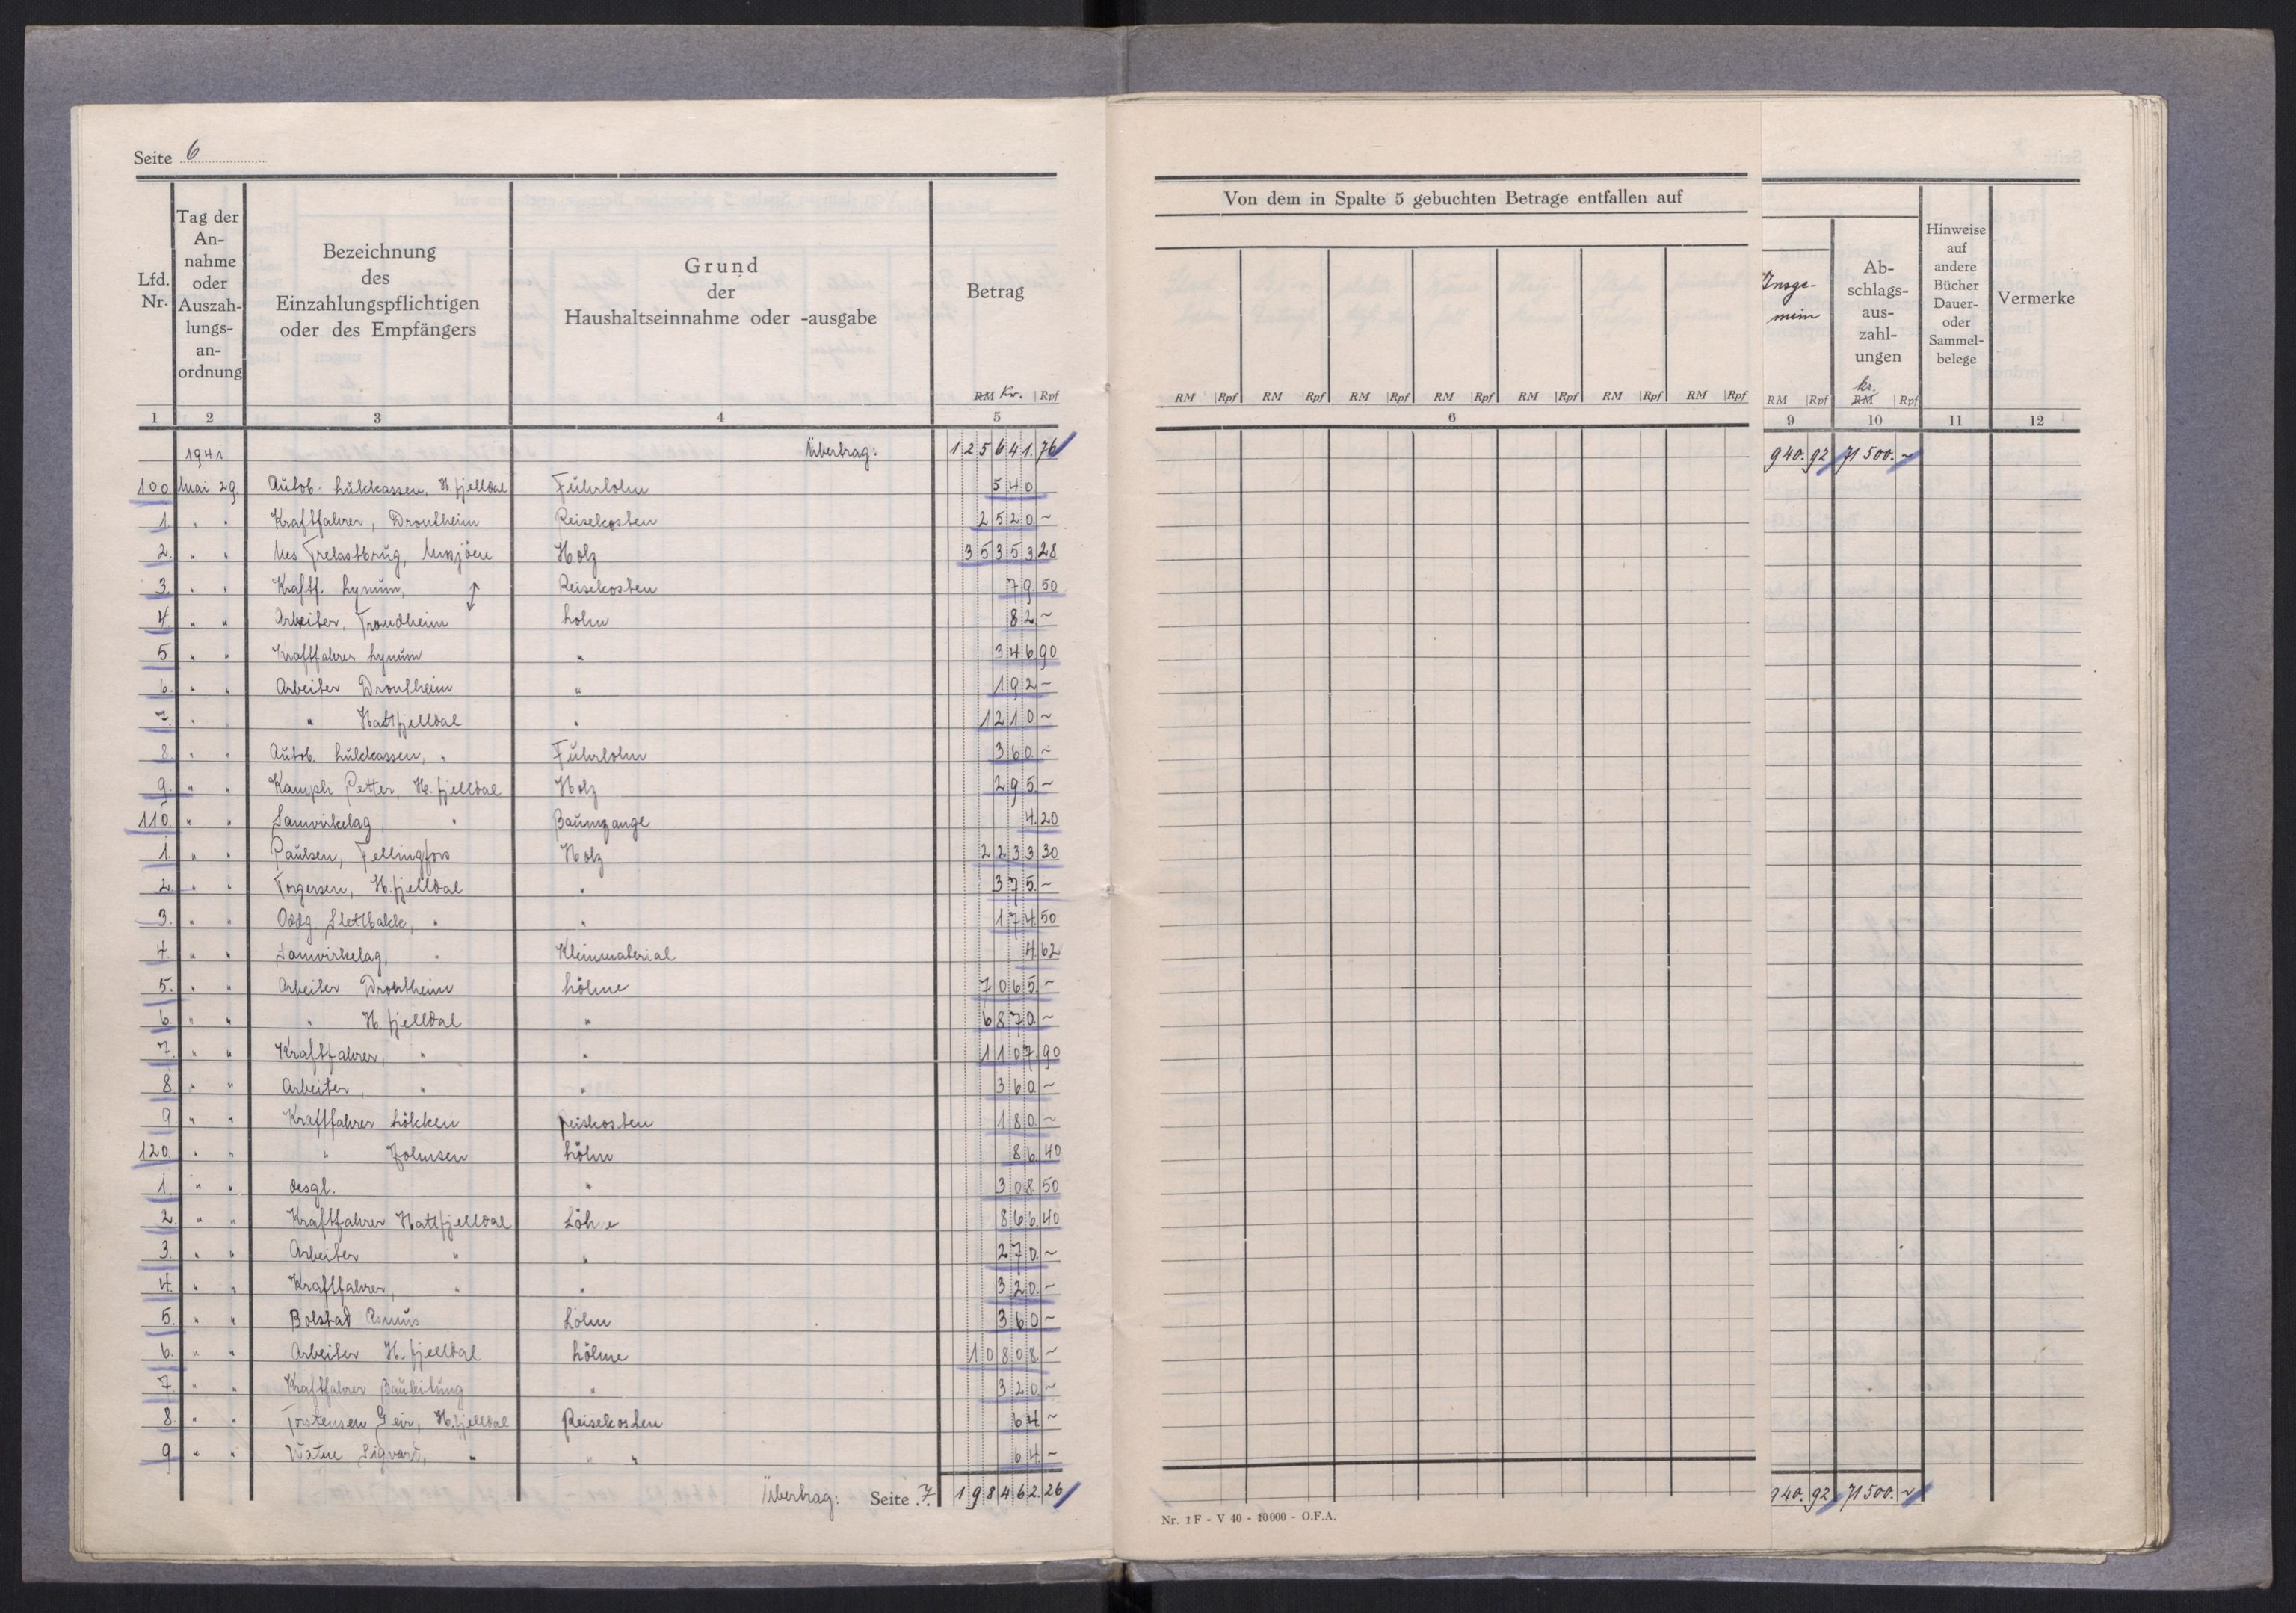 Seite 6
Lfd. Nr.
Tag der An-nahme oder Auszah-lungs-an-ordnung
Bezeichnung des Einzahlungspflichtigen oder des Empfängers
Grund der Haushaltseinnahme oder -ausgabe
Betrag
RM Kr. Rpf
1 2 3 4 5
1941 Übertrag: 125641.76
100 Mai 29. Autob. Lukkassen, H. fjelldal Fuhrlohn 540
1. " " Kraftfahrer, Drontheim Reisekosten 2520 -
2. " " Nes Trelastbrug, Holz 35353 28
3. " " Kraftf. Lynum, Reisekosten 79.50
4. " " Arbeiter, Trondheim Lohn 82 -
5. " " Kraftfahrer Lynum " 346 90
6. " " Arbeiter Drontheim " 192 -
7. " " " Hattfjelldal " 1210 -
8. " " Autob. Lukkassen, " Fuhrlohn 360. -
9. " " Kampli Petter, H. fjelldal Holz 295. -
110. " " Samvirkelag, " Baumzange 4.20
1. " " Paulsen, Fellingfors Holz 2233 30
2. " " Torgersen, H. fjelldal " 375. -
3. " " Oddg Sletbakk, " " 174.50
4. " " Samvirkelag, " Kleinmaterial 4.62
5. " " Arbeiter Drontheim Löhne 7065. -
6. " " " H. fjelldal " 6870. -
7. " " Kraftfahrer, " " 1107.90
8. " " Arbeiter, " " 360. -
9 " " Kraftfahrer Lökken Reisekosten 180. -
120. " " " Johnsen Löhn 86.40
1. " " desgl. " 308.50
2. " " Kraftfahrer Hattfjelldal Löhne 866.40
3. " " Arbeiter " " 270. -
4. " " Kraftfahrer, " " 320. -
5. " " Bolstad Asmus Lohn 360 -
6. " " Arbeiter H. fjelldal Löhne 10808. -
7. " " Kraftfahrer Bauleitung " 320. -
8. " " Torstensen Geir, H. fjelldal Reisekosten 64. -
9 " " Watne Sigvard, " " " 64. -
Übertrag: Seite 7. 198462.26
Von dem in Spalte 5 gebuchten Betrage entfallen auf
RM Rpf RM Rpf RM Rpf RM Rpf RM Rpf RM Rpf RM Rpf
6
Nr. 1 F - V 40 - 10000 - O.F.A.
Insge-mein
RM Rpf
Ab-schlags-aus-zahl-ungen
kr.
RM Rpf
Hinweise auf andere Bücher Dauer- oder Sammel-belege
Vermerke
9 10 11 12
940.92 71500.-
940.92 71500.-